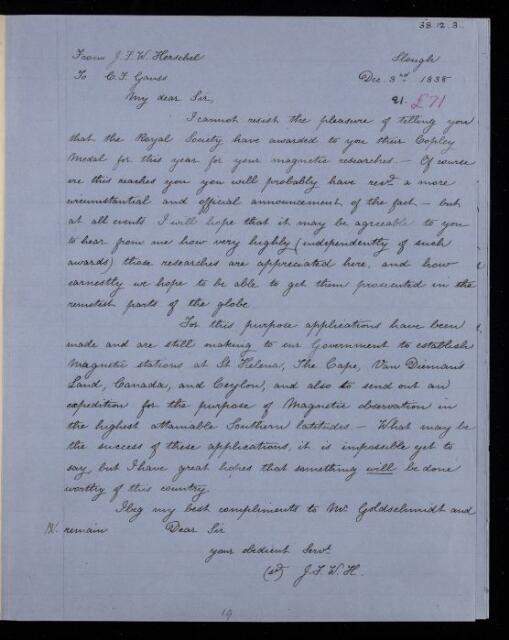 38.12.3.
From J. F. W. Herschel
Slough
To C. F. Gauss
Dec. 3rd 1838
My dear Sir,
21. £71
I cannot resist the pleasure of telling you
that the Royal Society have awarded to you their Copley
Medal for this year for your magnetic researches. — Of course
ere this reaches you you will probably have recd. a more
circumstantial and official announcement of the fact — but
at all events I will hope that it may be agreeable to you
to hear from me how very highly (independently of such
awards) those researches are appreciated here, and how
earnestly we hope to be able to get them prosecuted in the
remotest parts of the globe
For this purpose applications have been
made and are still making to our Government to establish
Magnetic stations at St Helena, The Cape, Van Dieman's
Land, Canada, and Ceylon, and also to send out an
expedition for the purpose of Magnetic observation in
the highest attainable Southern latitudes. — What may be
the success of these applications, it is impossible yet to
say, but I have great hopes that something will be done
worthy of this country.
I beg my best compliments to Mr. Goldschmidt and
remain Dear Sir
your obedient Servt.
(sd) J. F. W. H.
19